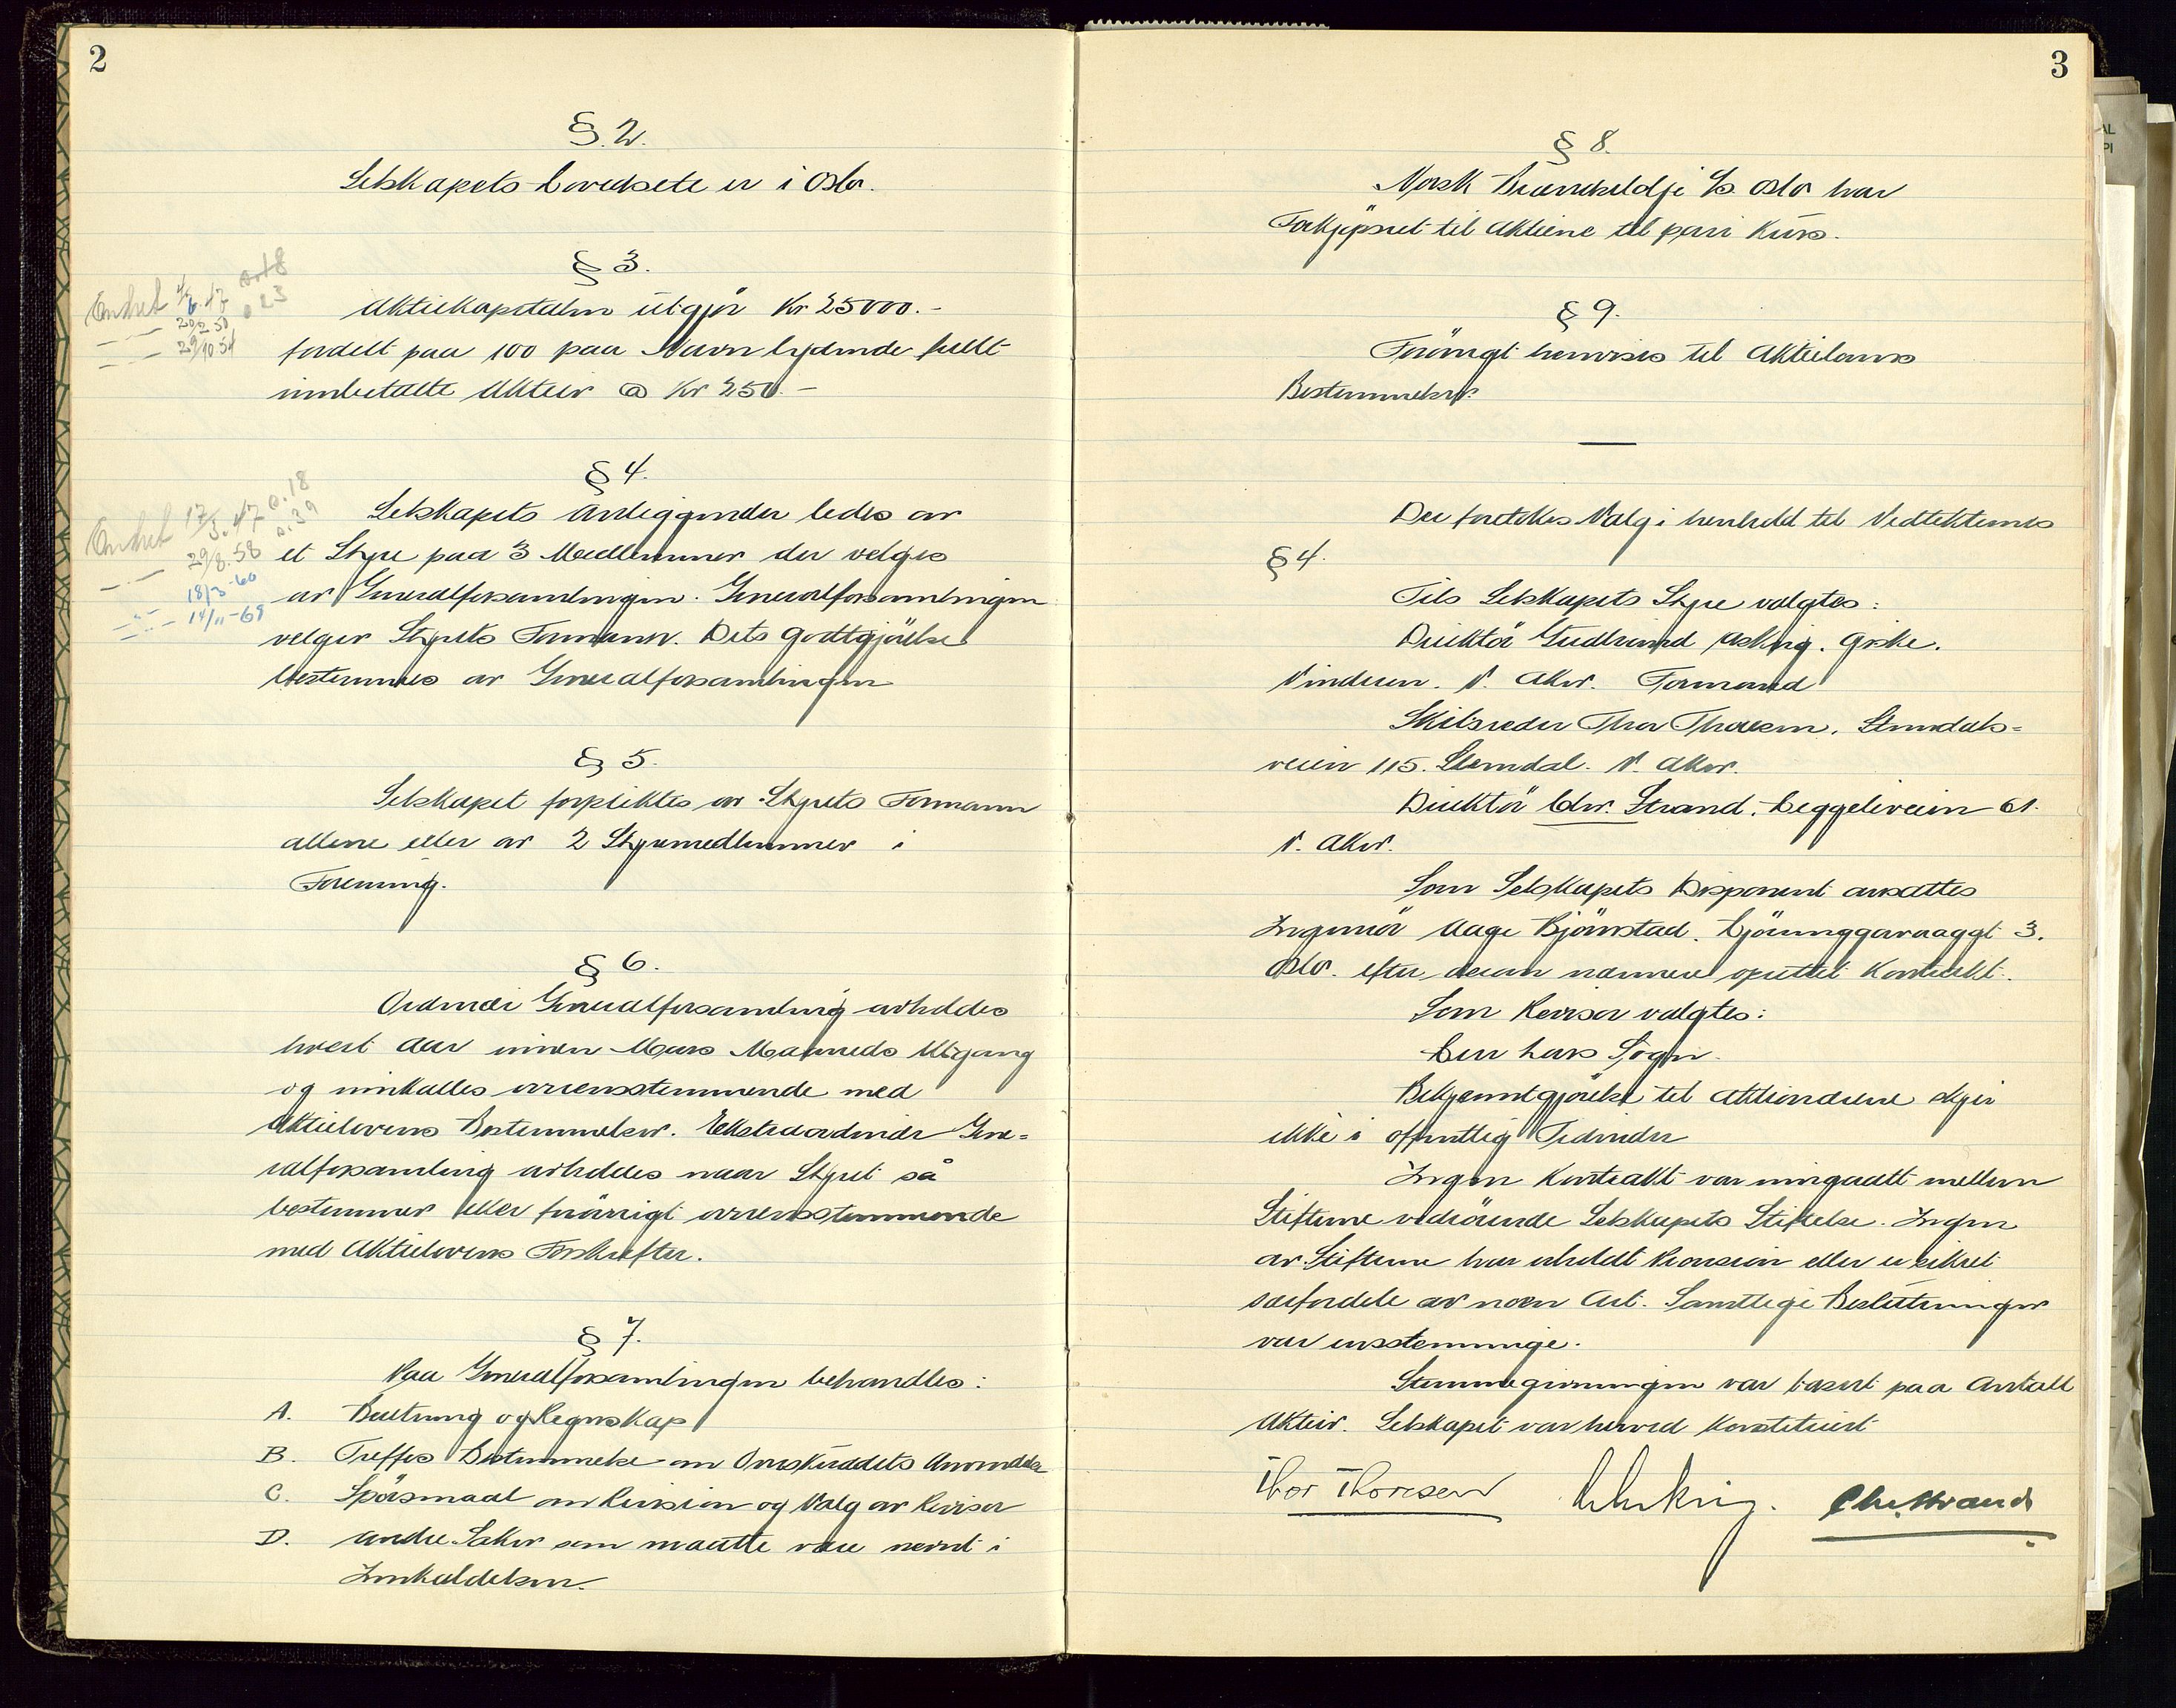 2
§ 2.
Selskapets Hovedsete er i Oslo.
§ 3.
Endret 4/6.47 s. 23
20/2 58
29/10.54
Aktiekapitalen utgjør Kr 25000.-
fordelt paa 100 paa Navn lydende fullt
innbetalte Aktier @ Kr 250.-
§ 4.
Endret 17/3.47 s.18
29/8.58 s.39
18/3-60
14/11-68
Selskapets Anliggender ledes av
et Styre paa 3 Medlemmer der velges
av Generalforsamlingen. Generalforsamlingen
velger Styrets Formann. Dets Godtgjörelse
bestemmes av Generalforsamlingen
§ 5.
Selskapet forpliktes av Styrets Formann
allene eller av 2 Styremedlemmer i
Forening.
§ 6.
Ordinær Generalforsamling avholdes
hvert Aar innen Mars Maaneds Utgang
og innkalles overensstemmende med
Aktielovens Bestemmelser. Ekstraordinær Gene=
ralforsamling avholdes naar Styret så
bestemmer eller forövrigt overensstemmende
med Aktielovens Forskrifter.
§ 7.
Paa Generalforsamlingen behandles:
A. Beretning og Regnskap
B. Treffes Bestemmelse om Overskuddets Anvendelse
C. Spörsmaal om Revision og Valg av Revisor
D. Andre Saker som maatte være nevnt i
Innkaldelsen.
3
§ 8.
Norsk Brændselolje A/S Oslo har
Forkjöpsret til Aktiene til pari Kurs.
§ 9.
Forövrigt henvises til Aktielovens
Bestemmelser.
Der foretokes Valg i henhold til Vedtektenes
§ 4.
Til Selskapets Styre valgtes:
Direktör Gudbrand Asking.
Vinderen. V. Aker. Formand
Skibsreder Thor Thoresen. Slemdals=
veien 115. Slemdal. V. Aker.
Direktör Chr. Strand. Heggeliveien 61.
V. Aker.
Som Selskapets Disponent ansattes
Ingeniör Aage Björnstad. 3.
Oslo. efter derom nærmere oprettet Kontrakt.
Som Revisor valgtes:
Herr Lars Sogn.
Bekjenntgjörelse til Aktionærene skjer
ikke i offentlig Tidender
Ingen Kontrakt var inngaatt mellem
Stifterne vedrörende Selskapets Stiftelse. Ingen
av Stifterne har erholdt Provision eller er sikret
særfordele av noen Art. Samtlige Beslutninger
var enstemmige.
Stemmegivningen var basert paa Antall
Aktier. Selskapet var herved Konstituert
Thor Thoresen Chr. Strand